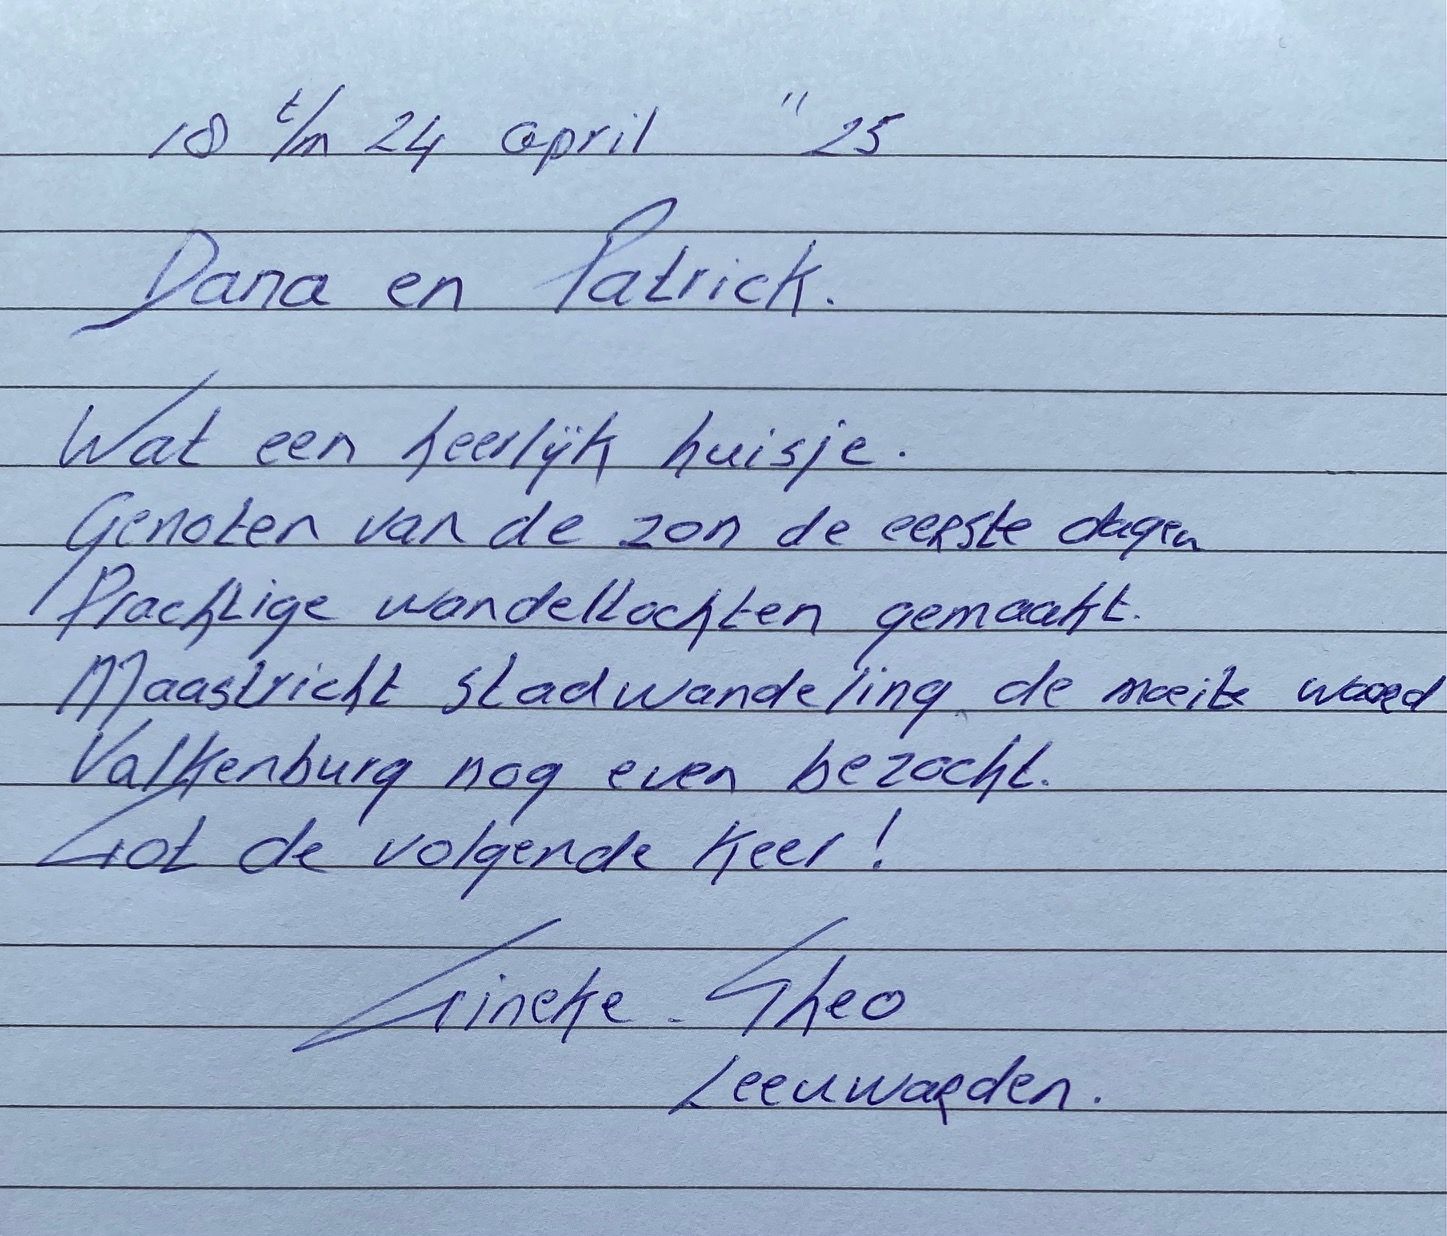 18 t/m 24 april "25
Dana en Patrick.
Wat een heerlijk huisje.
Genoten van de zon de eerste dagen
Prachtige wandeltochten gemaakt.
Maastricht stadwandeling de moeite waard
Valkenburg nog even bezocht.
Tot de volgende keer!
Tineke - Theo
Leeuwarden.